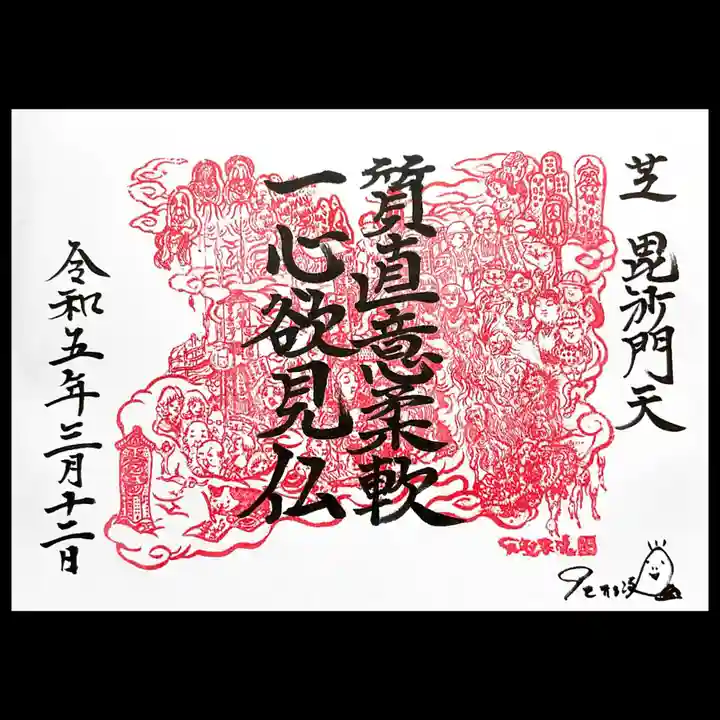 芝 毘沙門天
質直意柔軟
一心欲見仏
令和五年三月十二日